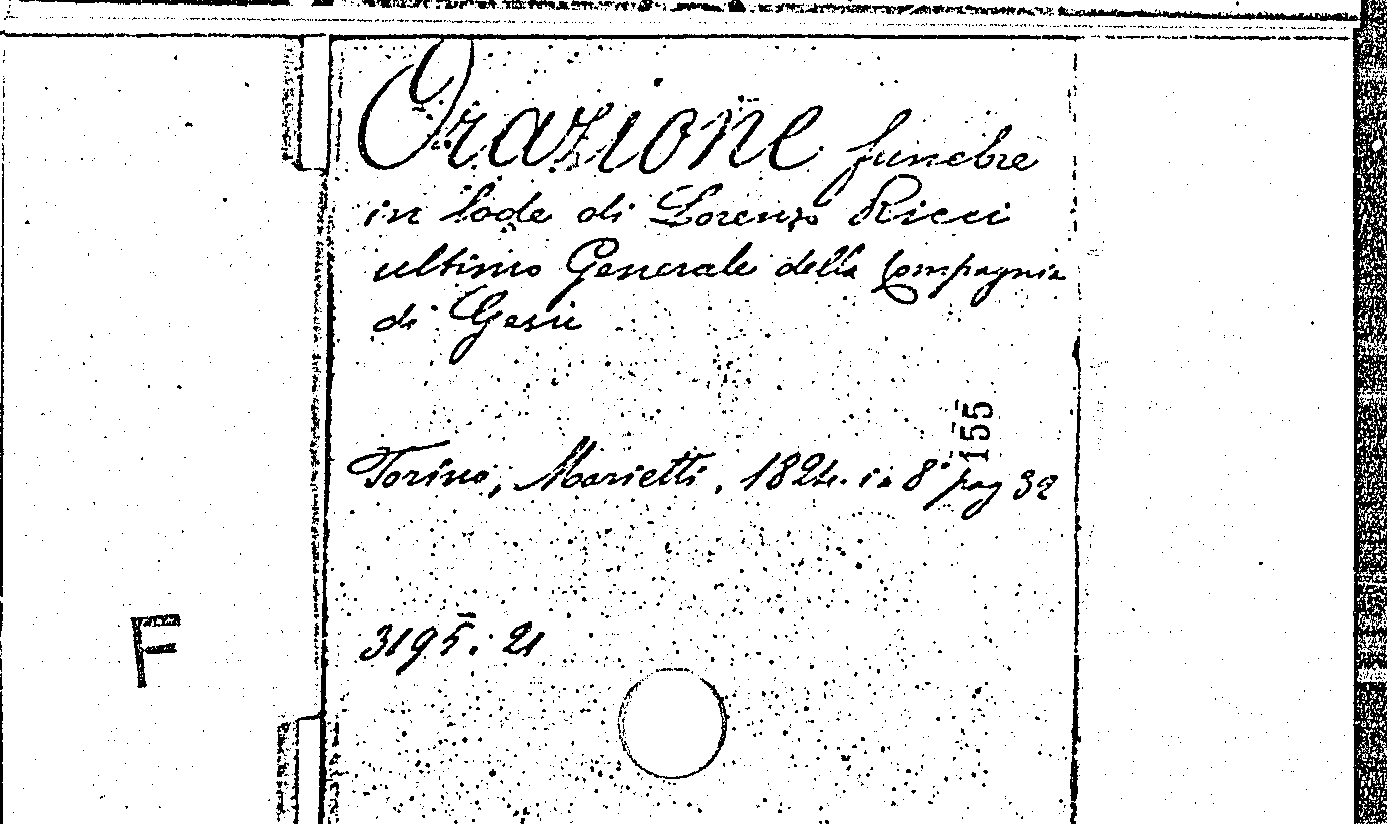 Orazione funebre
in lode di Lorenzo Ricci
ultimo Generale della Compagnia
di Gesù
155
Torino, Marietti, 1824. in 8° pag 32
3195. 21
F